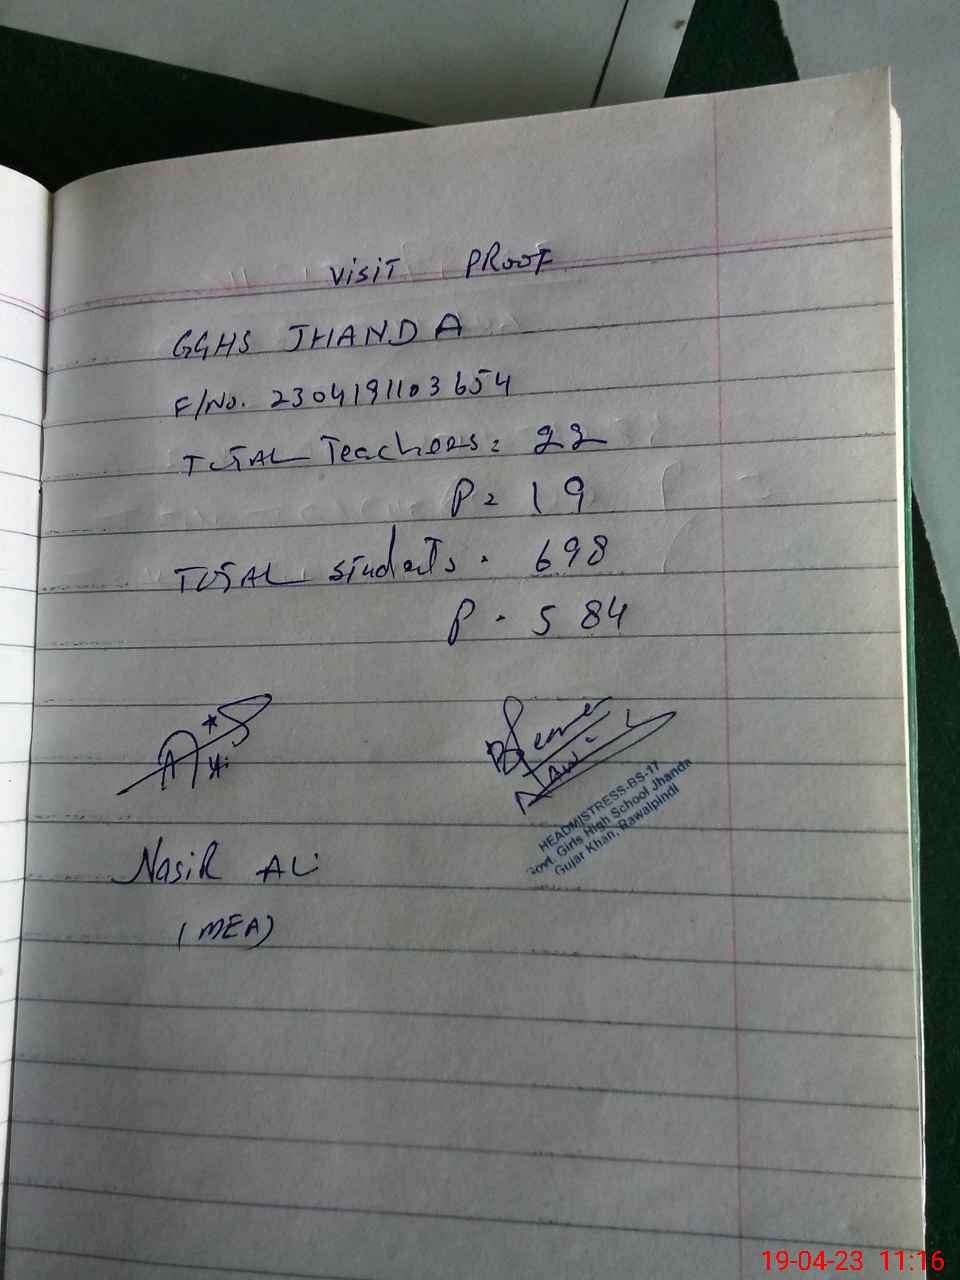 VISIT PROOF
GGHS JHANDA
F/No. 2304191103654
TOTAL Teachers: 22
P = 19
TOTAL students. 698
P. 584
HEADMISTRESS-BS-17
Govt. Girls High School Jhanda
Gujar Khan, Rawalpindi
Nasir Ali
(MEA)
19-04-23 11:16